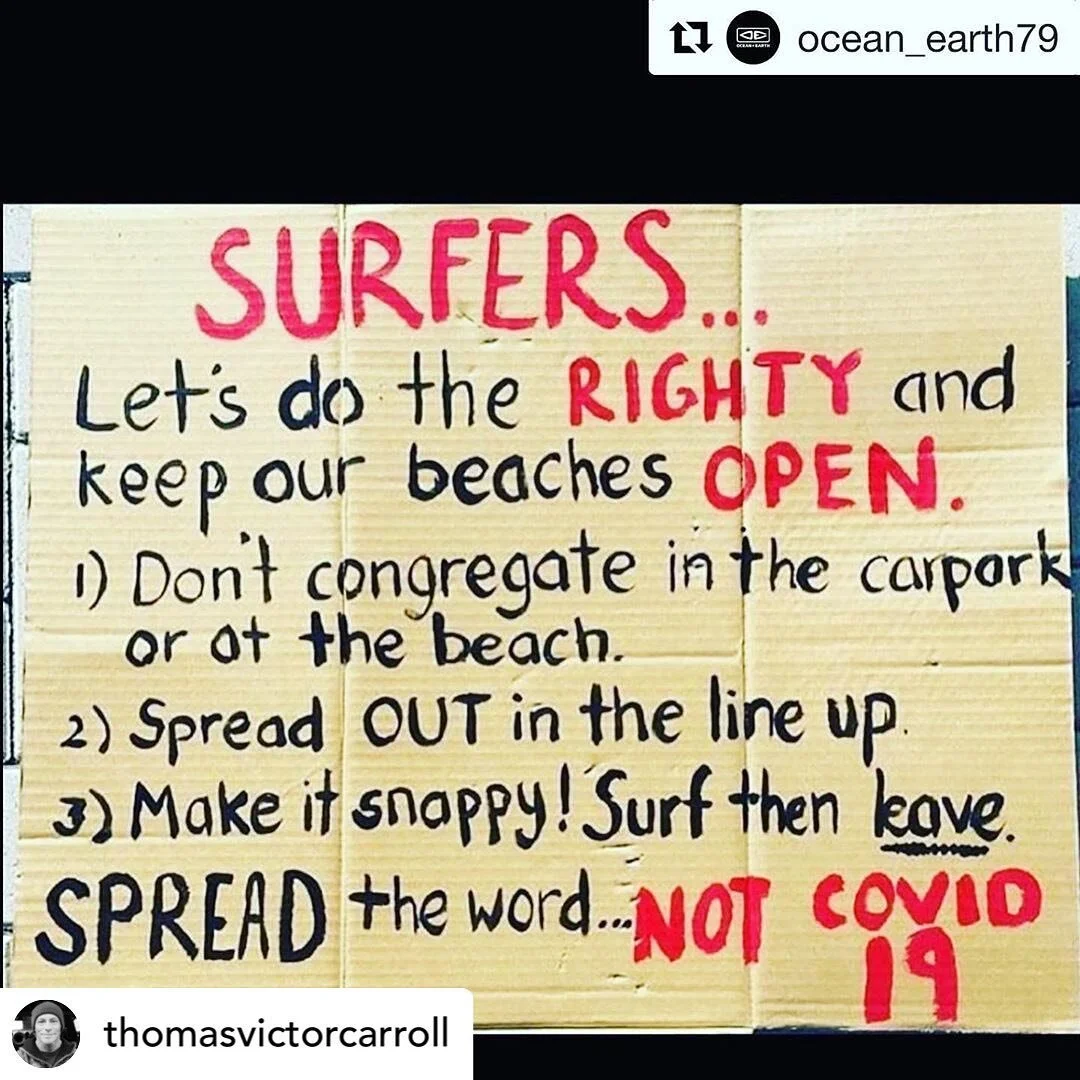 ocean_earth79
OCEAN+EARTH
SURFERS...
Let's do the RIGHTY and
keep our beaches OPEN.
1) Don't congregate in the carpark
or at the beach.
2) Spread OUT in the line up.
3) Make it snappy! Surf then leave.
SPREAD the word... NOT COVID
19
thomasvictorcarroll